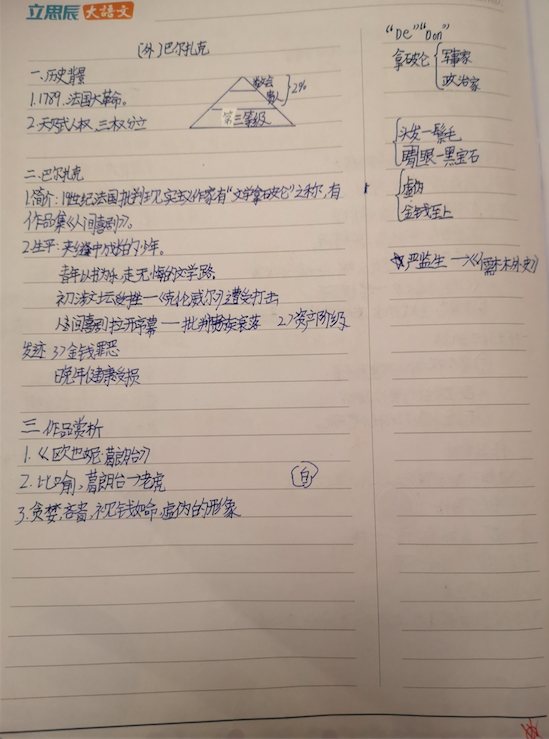 立思辰 大语文
(外)巴尔扎克
一.历史背景
1.1789.法国大革命。
2.天赋人权、三权分立
教会
贵族
2%
第三等级
二.巴尔扎克
1.简介:19世纪法国批判现实主义作家有“文学拿破仑”之称,有
作品集《人间喜剧》。
2.生平:夹缝中成长的少年。
青年以书为乐,走无悔的文学路
初涉文坛受挫一《克伦威尔》遭受打击
人间喜剧拉开序幕一批判贵族衰落 2>资产阶级
发迹 3>金钱罪恶
晚年健康受损
三.作品赏析
1.《欧也妮·葛朗台》
2.比喻,葛朗台→老虎
3.贪婪,吝啬,视钱如命,虚伪的形象
“De”“Don”
拿破仑 军事家
政治家
头发一鬃毛
眼一黑宝石
虚伪
金钱至上
严监生→《儒林外史》